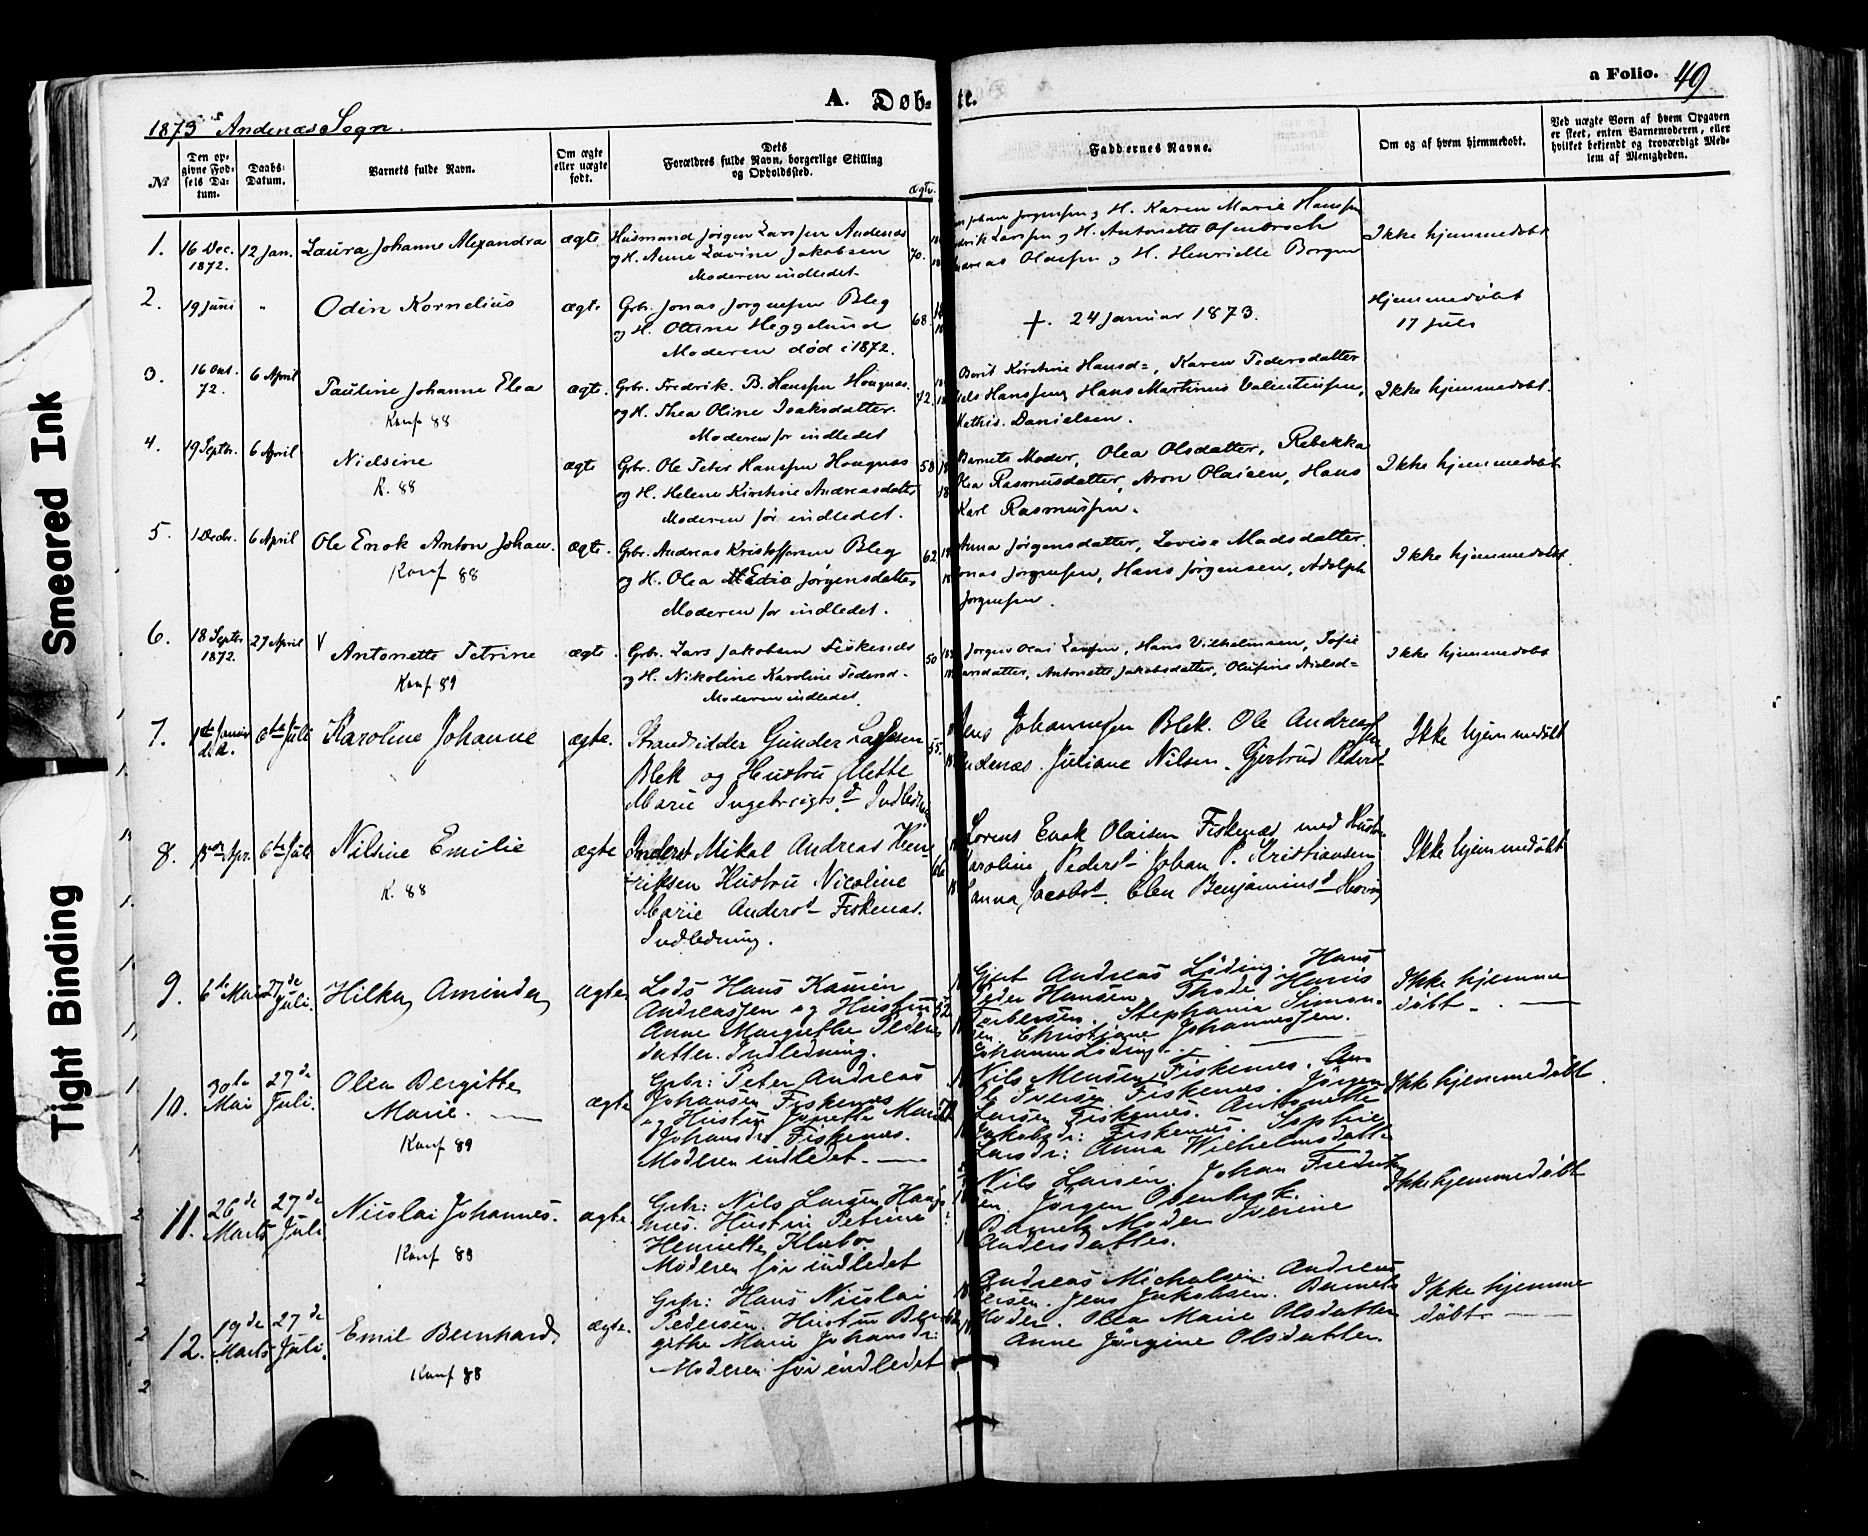 a Folio. 49
A. Døb- te.
1873 Andenæs Sogn.
№
Den op-
givne Fød-
sels Da-
tum.
Daabs-
Datum.
Barnets fulde Navn.
Om ægte
eller uægte
født.
Dets
Forældres fulde Navn, borgerlige Stilling
og Opholdssted.
Ægtv.
Faddernes Navne.
Om og af hvem hjemmedøbt.
Ved uægte Børn af hvem Opgaven
er skeet, enten Barnemoderen, eller
hvilket bekjendt og troværdigt Med-
lem af Menigheden.
1. 16 Dec. 1872. 12 Jan. Laura Johanne Alexandra ægte
Husmand Jørgen Larssen Andenæs
og H. Anne Lavine Jakobsen
Moderen indledet
70.
Johan Jørgenssen og H. Karen Marie Hanssen
Larssen og H. Antoniette Ofenbroch
Olaissen og H. Henriette Borgen
Ikke hjemmedøbt
2. 19 Juni " Odin Kornelius ægte
Grbr. Jonas Jørgenssen Bleg
og H. Oline Heggelund
Moderen død i 1872.
68.
†. 24 Januar 1873.
Hjemmedøbt
17 Juli
3. 16 Oct. 72. 6 April Pauline Johanne Elea ægte.
Konf 88
Grbr. Fredrik. B. Hanssen Hougnæs
og H. Thea Oline Isaksdatter.
Moderen før indledet
72.
Berit Kirstine Hansd=, Karen Pedersdatter
Hanssen, Hans Martinus Valentinssen,
Mathis. Danielsen.
Ikke hjemmedøbt.
4. 19 Septbr. 6 April Nielsine ægte
K. 88
Grbr. Ole Peter Hanssen Hougnæs
og H. Helene Kirstine Andreasdatter
Moderen før indledet.
58
Barnets Moder, Olea Olsdatter, Rebekka
Rasmusdatter, Aron Olaisen, Hans
Karl Rasmussen.
Ikke hjemmedøbt
5. 1 Decbr. 6 April Ole Enok Anton Johan. ægte.
Konf 88
Grbr. Andreas Kristoffersen Bleg
og H. Olea Jørgensdatter
Moderen før indledet.
62
Anna Jørgensdatter, Lovise Madsdatter.
Jørgenssen, Hans Jørgensen, Adolph
Jørgenssen.
Ikke hjemmedøbt.
6. 18 Septbr 1872. 27 April Antonette Petrine ægte.
Konf 89
Grbr. Lars Jakobsen Fiskenæs
og H. Nikoline Karoline Pedersd-
Moderen indledet.
50
Jørgen Olai Larssen, Hans Vilhelmsen, Sofie
Larsdatter, Antonette Jakobsdatter, Olufine Nielsd=
Ikke hjemmedøbt
7. 6te Juli Karoline Johanne ægte.
Strandsidder Gunder Larssen
Blek og Hustru Mette
Marie Ingebreigtsd. Indledning
55.
Jens Johannessen Blek. Ole Andreassen
Andenæs. Juliane Nilsen. Gjertrud Pedersd-
Ikke hjemmedøbt
8. Apr. 6te Juli Nilsine Emilie ægte
K. 88
Inderst Mikal Andreas Hen-
riksen Hustru Nicoline
Marie Andersd- Fiskenæs.
Indledning.
66
Lorens Enok Olaisen Fiskenæs med Hustru
Karoline Pedersd- Johan P. Kristiansen
Hanna Jacobsd. Elen Benjaminsd-
Ikke hjemmedøbt
9. 6te Mai 27de Juli. Hilka Aminda ægte
Lods Hans Kamin
Andreassen og Hustru
Anne Margrethe Peders
datter. Indledning.
Gjert Andreas Løding. Hans
Peder Hansen. Thode Hanis
Torbersen. Stephania Simon-
sen. Christiane Johannessen.
Johanna Løding.
Ikke hjemme
døbt. —
10. 30te Mai 27de Juli. Olea Bergitte
Marie. — ægte
Konf 89
Grbr: Peter Andreas
Johansen Fiskenæs
og Hustru Janette
Johansdr Fiskenæs.
Moderen indledet. —
Nils Mensen Fiskenes.
Ole Iversen Fiskenes. Jørgen
Larsen Fiskenes. Antonette
Jakobsdr: Fiskenes. Sophie
Larsdr: Anna Wilhelmsdatter
Ikke hjemmedøbt.
11. 26de Marts 27de Juli Nicolai Johannes. ægte.
Konf 89
Grbr: Nils Larsen Haug
nes. Hustru Petrine
Henriette Klæbo
Moderen før indledet
Nils Larsen. Johan Fredrik
sen. Jørgen Ofenbrok.
Barnets Moder Iverine
Andersdatter.
Ikke hjemmedøbt
12. 19de Marts 27de Juli. Emil Bernhard ægte.
Konf 88
Grbr: Hans Nicolai
Pedersen. Hustru Ber
githe Marie Johansdr:
Moderen før indledet
Andreas Michalsen. Andreas
Jens Jakobsen. Barnets
Moder. Olea Marie Olsdatter
Anne Jørgine Olsdatter.
Ikke hjemme
døbt. —
Smeared Ink
Tight Binding